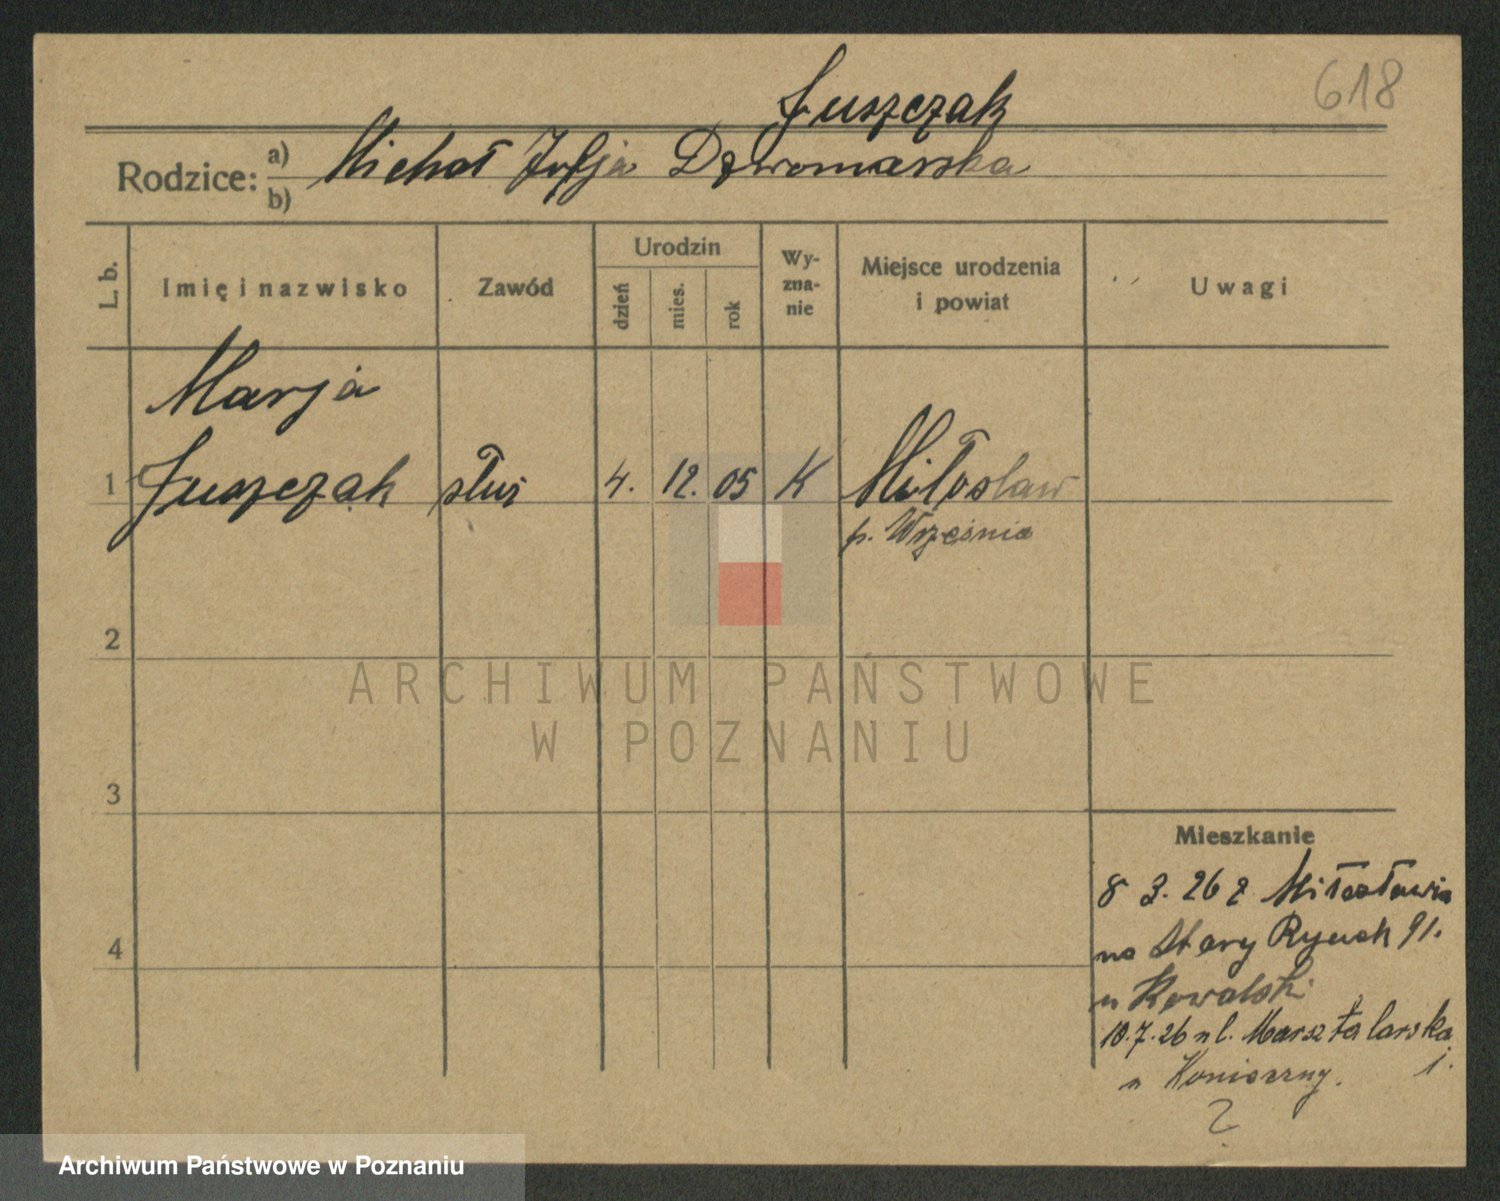 618
Juszczak
Rodzice: a) Michał Zofja Dzwomarska
b)
L. b.
Imię i nazwisko
Zawód
Urodzin
dzień
mies.
rok
Wy-
zna-
nie
Miejsce urodzenia
i powiat
Uwagi
Marja
1 Juszczak służ 4. 12. 05 K Miłosław
p. Września
2
3
4
Mieszkanie
8 3. 26 z Miłosławia
na Stary Rynek 91.
u Kowalski
10.7.26 ul. Marsztalarska
1.
u Konieczny.
?
ARCHIWUM PAŃSTWOWE
W POZNANIU
Archiwum Państwowe w Poznaniu